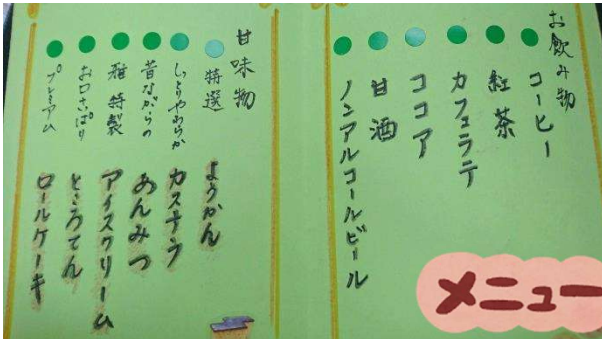 お飲み物
コーヒー
紅茶
カフェラテ
ココア
甘酒
ノンアルコールビール
甘味物
特選 ようかん
しっとりやわらか カステラ
昔ながらの あんみつ
雅特製 アイスクリーム
お口さっぱり ところてん
プレミアム ロールケーキ
メニュー